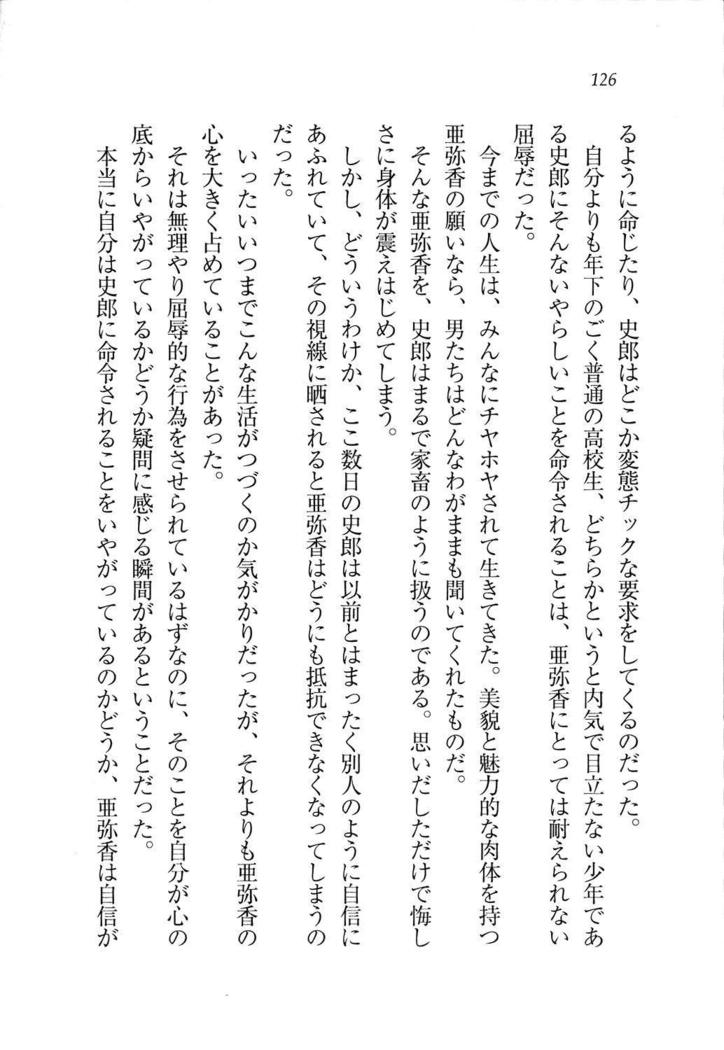 126
るように命じたり、史郎はどこか変態チックな要求をしてくるのだった。
自分よりも年下のごく普通の高校生、どちらかというと内気で目立たない少年であ
る史郎にそんないやらしいことを命令されることは、亜弥香にとっては耐えられない
屈辱だった。
今までの人生は、みんなにチヤホヤされて生きてきた。美貌と魅力的な肉体を持つ
亜弥香の願いなら、男たちはどんなわがままも聞いてくれたものだ。
そんな亜弥香を、史郎はまるで家畜のように扱うのである。思いだしただけで悔し
さに身体が震えはじめてしまう。
しかし、どういうわけか、ここ数日の史郎は以前とはまったく別人のように自信に
あふれていて、その視線に晒されると亜弥香はどうにも抵抗できなくなってしまうの
だった。
いったいいつまでこんな生活がつづくのか気がかりだったが、それよりも亜弥香の
心を大きく占めていることがあった。
それは無理やり屈辱的な行為をさせられているはずなのに、そのことを自分が心の
底からいやがっているかどうか疑問に感じる瞬間があるということだった。
本当に自分は史郎に命令されることをいやがっているのかどうか、亜弥香は自信が